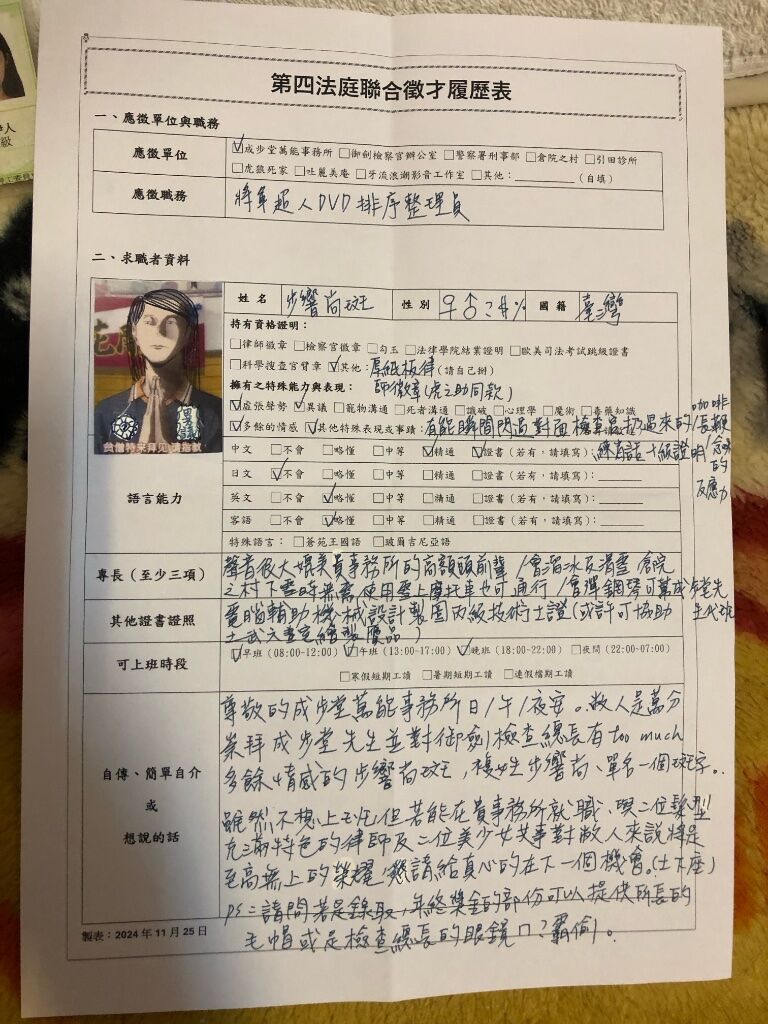 第四法庭聯合徵才履歷表
一、應徵單位與職務
應徵單位
☑成步堂萬能事務所 □御劍檢察官辦公室 □警察署刑事部 □倉院之村 □引田診所
□虎狼死家 □吐麗美庵 □牙流浪潮影音工作室 □其他：＿＿＿＿（自填）
應徵職務
將軍超人DVD排序整理員
二、求職者資料
姓名 步響尚斑 性別 國籍 臺灣
持有資格證明：
□律師徽章 □檢察官徽章 □勾玉 □法律學院結業證明 □歐美司法考試跳級證書
□科學搜查官臂章 ☑其他：厚紙板律(請自己掰)
師徽章(虎之助同款)
擁有之特殊能力與表現：
☑虛張聲勢 ☑異議 □寵物溝通 □死者溝通 □識破 □心理學 □魔術 □毒藥知識
☑多餘的情感 ☑其他特殊表現或事蹟：有能瞬間閃過對面檢事扔過來的咖啡/長鞭/念珠的反應力
異議
貧僧特來拜見
語言能力
中文 □不會 □略懂 □中等 ☑精通 ☑證書（若有，請填寫）：十級證明
日文 ☑不會 □略懂 □中等 □精通 □證書（若有，請填寫）：＿＿＿
英文 □不會 ☑略懂 □中等 □精通 □證書（若有，請填寫）：＿＿＿
客語 □不會 ☑略懂 □中等 □精通 □證書（若有，請填寫）：＿＿＿
特殊語言：□蒼苑王國語 □玻爾吉尼亞語
專長（至少三項）
聲音很大媲美貴事務所的高額頭前輩/會溜冰及滑雪倉院
之村下雪時無需使用雪上摩托車也可通行/會彈鋼琴可幫成步堂先生代班
其他證書證照
電腦輔助機械設計製圖丙級技術士證(或許可協助
繪製贗品)
可上班時段
☑早班 (08:00~12:00) ☑午班 (13:00~17:00) ☑晚班 (18:00~22:00) □夜間 (22:00~07:00)
□寒假短期工讀 □暑期短期工讀 □連假檔期工讀
自傳、簡單自介
或
想說的話
尊敬的成步堂萬能事務所日/午/夜安。敝人是萬分
崇拜成步堂先生並對御劍檢查總長有too much
多餘情感的步響尚斑，複姓步響尚、單名一個斑字。
雖然不想上班但若能在貴事務所就職、與二位髮型
充滿特色的律師及二位美少女共事對敝人來說將是
至高無上的榮耀，懇請給真心的在下一個機會。(土下座)
ps=請問若是錄取，年終獎金的部份可以提供所長的
毛帽或是檢查總長的眼鏡ㄇ？霸偷。
製表：2024年11月25日